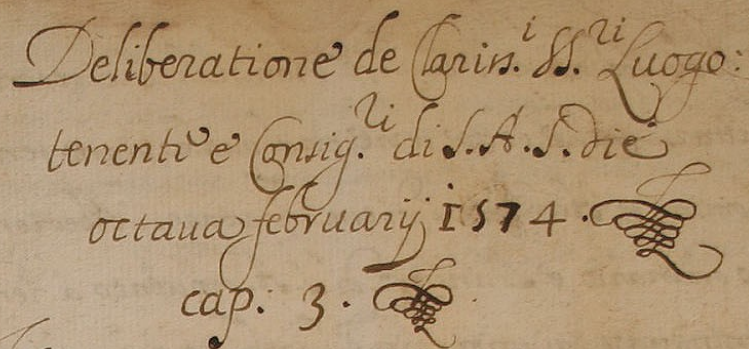 Deliberatione de Clariss.i SS.ri Luogo:
tenenti e Consig.ri di S. A. S. die
octaua februarij 1574.
cap: 3.